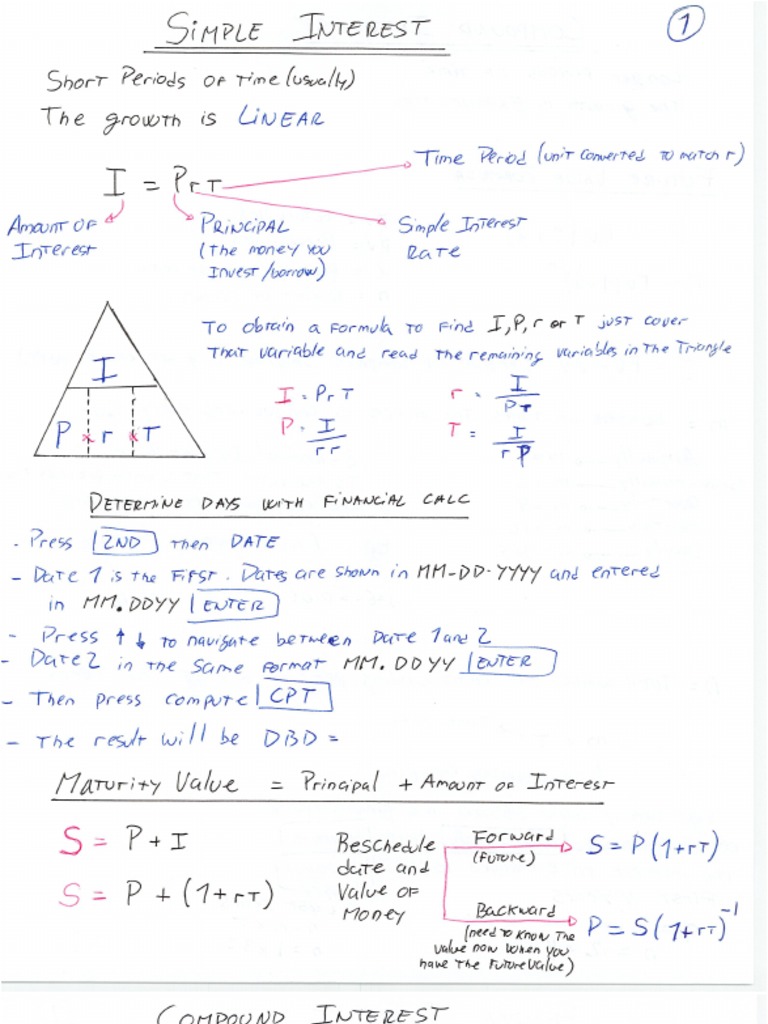 SIMPLE INTEREST
1
Short Periods of time (usually)
The growth is LINEAR
Time Period (unit converted to match r)
I = PrT
Amount of Interest
PRINCIPAL
(The money you
invest/borrow)
Simple Interest
Rate
To obtain a formula to find I, P, r or T just cover
that variable and read the remaining variables in the Triangle
I
P × r × T
I = PrT
r = I / PT
P = I / rT
T = I / rP
DETERMINE DAYS WITH FINANCIAL CALC
- Press 2ND then DATE
- Date 1 is the first. Dates are shown in MM-DD-YYYY and entered
in MM.DDYY ENTER
- Press ↑ ↓ to navigate between Date 1 and 2
- Date 2 in the same format MM.DDYY ENTER
- Then press compute CPT
- The result will be DBD =
Maturity Value = Principal + Amount of Interest
S = P + I
S = P + (1+rT)
Reschedule
date and
Value of
Money
Forward
(Future)
S = P(1+rT)
Backward
(need to know the
value now when you
have the future value)
P = S(1+rT)⁻¹
COMPOUND INTEREST